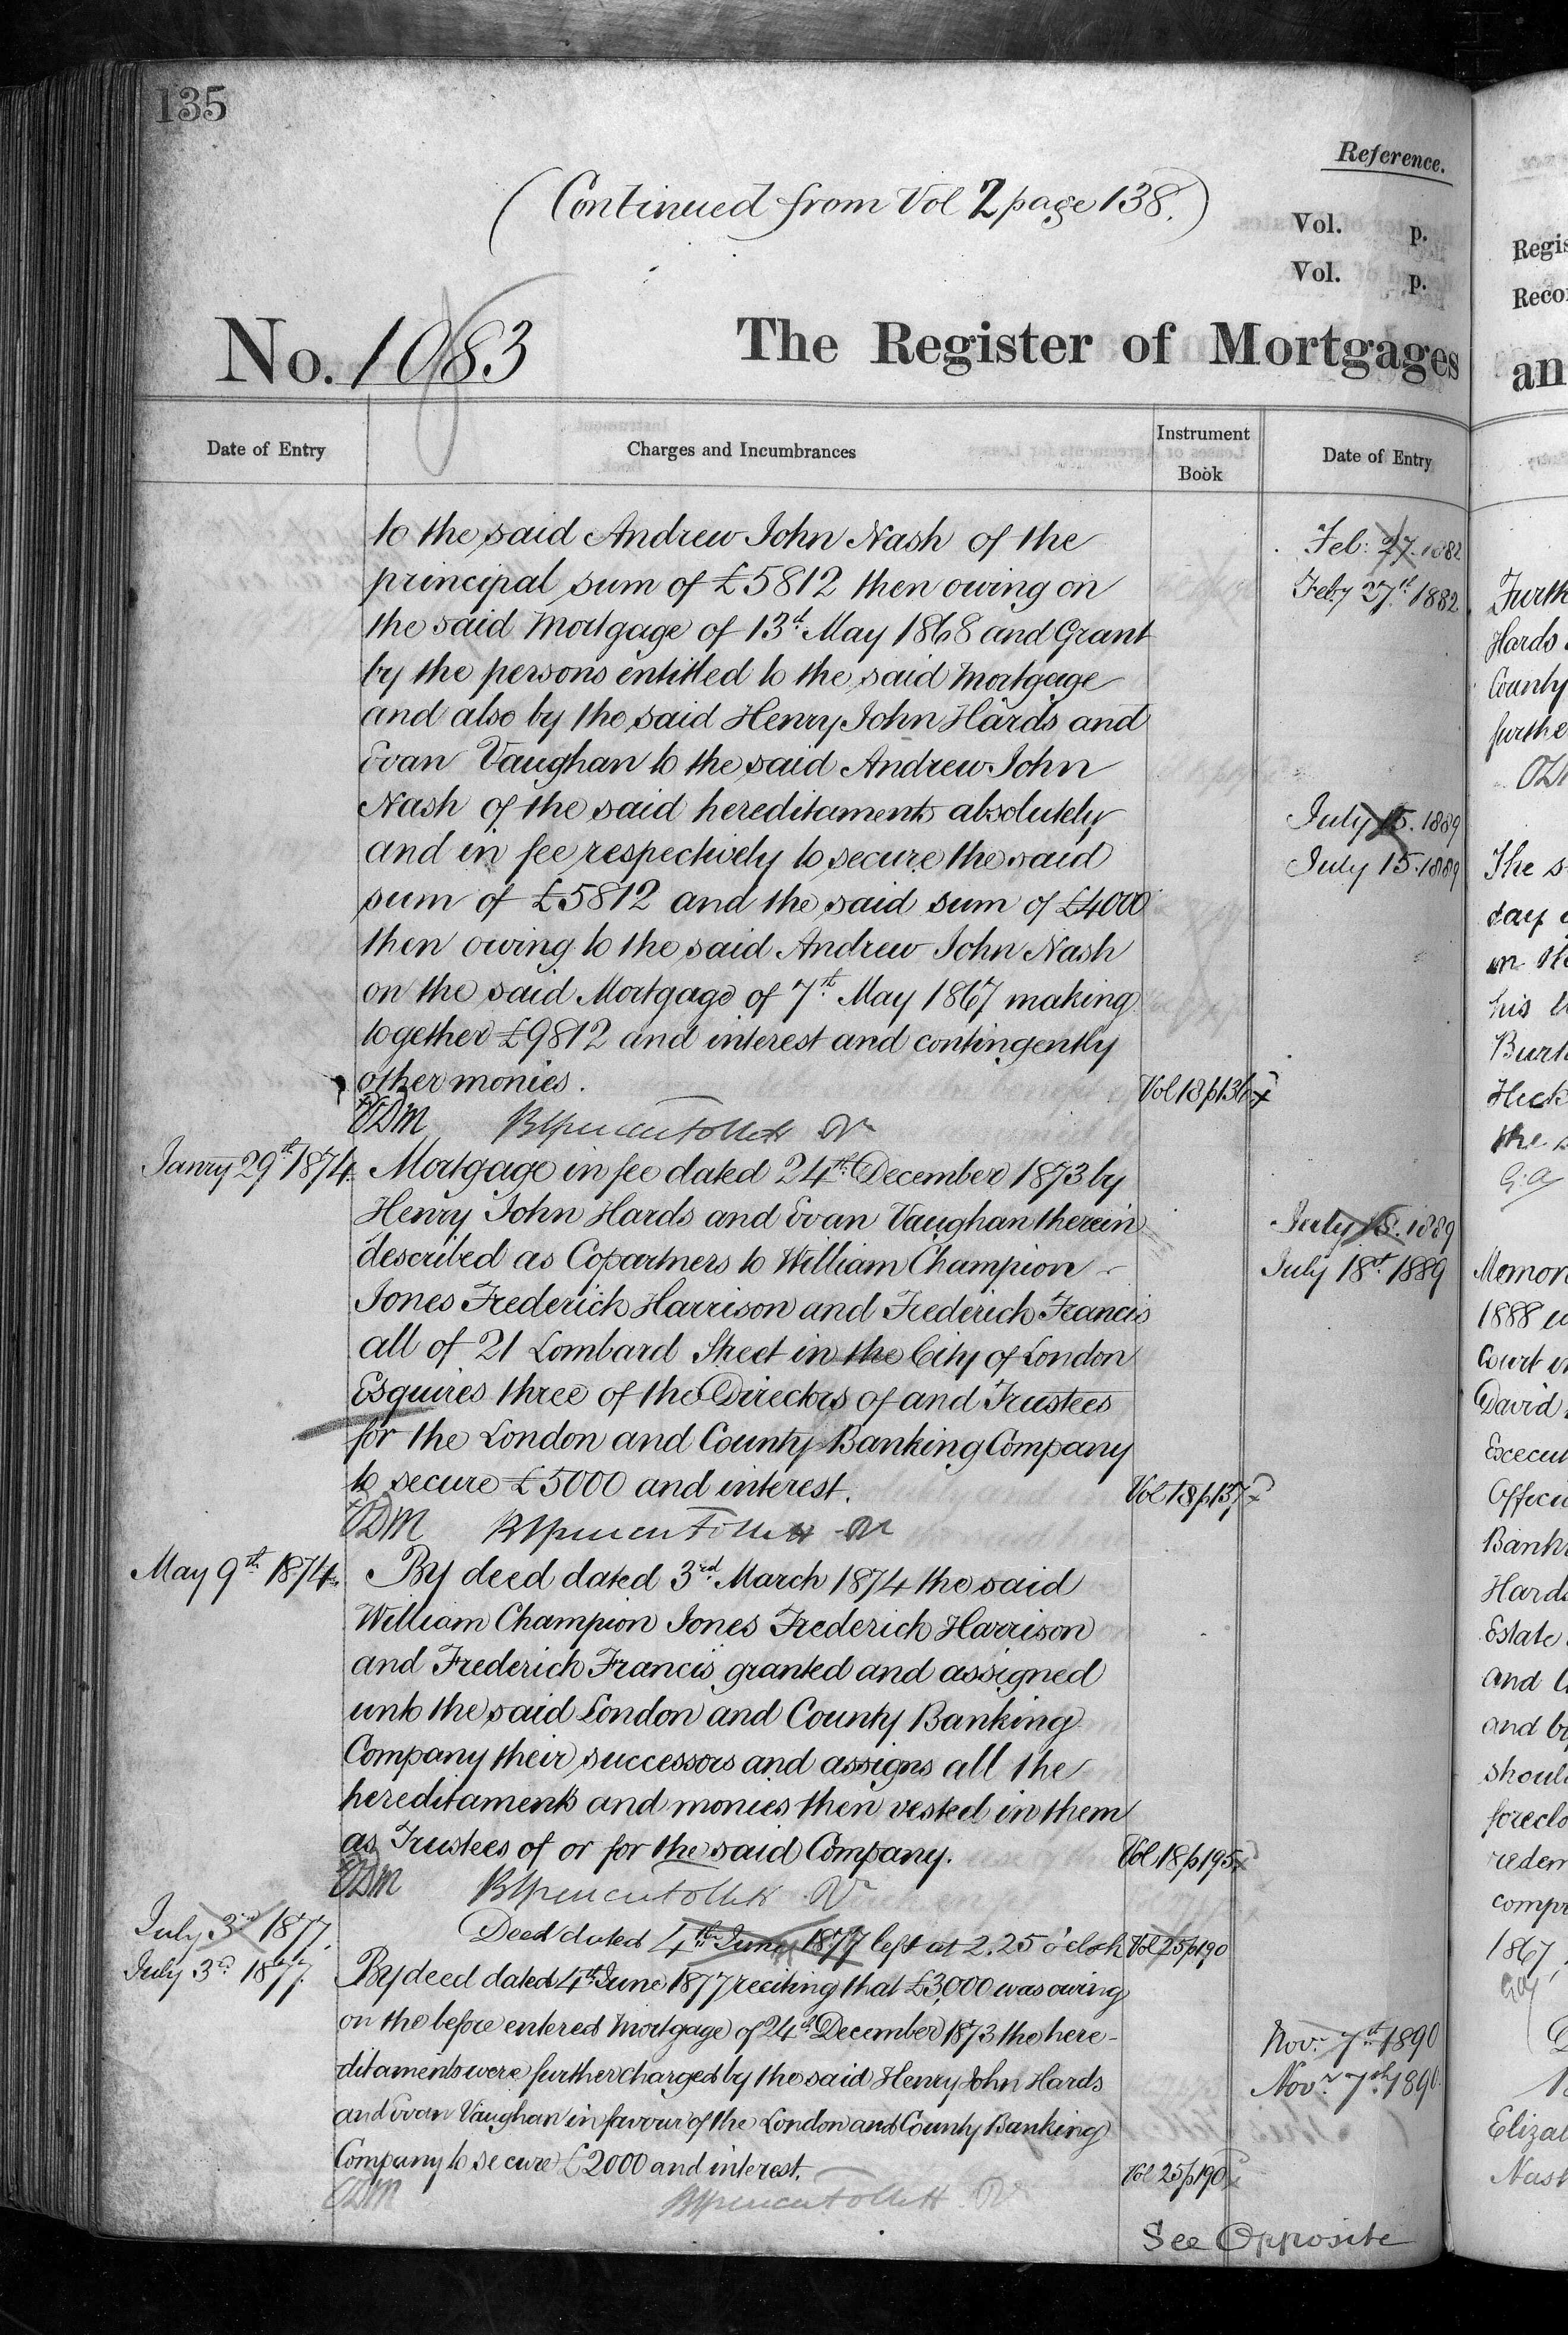 135
Reference.
(Continued from Vol 2 page 138.)
Vol. p.
Vol. p.
No. 1083 The Register of Mortgages
Date of Entry
Charges and Incumbrances
Instrument Book
Date of Entry
to the said Andrew John Nash of the
principal sum of £5812 then owing on
the said Mortgage of 13th May 1868 and Grant
by the persons entitled to the said mortgage
and also by the said Henry John Hards and
Evan Vaughan to the said Andrew John
Nash of the said hereditaments absolutely
and in fee respectively to secure the said
sum of £5812 and the said sum of £4000
then owing to the said Andrew John Nash
on the said Mortgage of 7th May 1867 making
together £9812 and interest and contingently
other monies. Vol 18 p136
Janry 29th 1874. Mortgage in fee dated 24th December 1873 by
Henry John Hards and Evan Vaughan therein
described as Copartners to William Champion
Jones Frederick Harrison and Frederick Francis
all of 21 Lombard Street in the City of London
Esquires three of the Directors of and Trustees
for the London and County Banking Company
to secure £5000 and interest. Vol 18 p137
May 9th 1874. By deed dated 3rd March 1874 the said
William Champion Jones Frederick Harrison
and Frederick Francis granted and assigned
unto the said London and County Banking
Company their successors and assigns all the
hereditaments and monies then vested in them
as Trustees of or for the said Company. Vol 18 p195
July 3rd 1877. Deed dated 4th June 1877 left at 2.25 o'clock Vol 25 p190
July 3rd 1877. By deed dated 4th June 1877 reciting that £3,000 was owing
on the before entered Mortgage of 24th December 1873 the here-
ditaments were further charged by the said Henry John Hards
and Evan Vaughan in favour of the London and County Banking
Company to secure £2000 and interest. Vol 25 p190
See Opposite
Feb: 27. 1882
Feby 27th 1882
July 15. 1889
July 15. 1889
July 18. 1889
July 18th 1889
Novr 7th 1890
Novr 7th 1890
Regis
Reco
an
Furth
Hards
County
furthe
The s
day
on the
his
Burt
Heck
the s
Memor
1888
Court
David
Execut
Officia
Bankr
Hards
Estate
and
and by
should
foreclo
redem
compr
1867,
Elizab
Nash